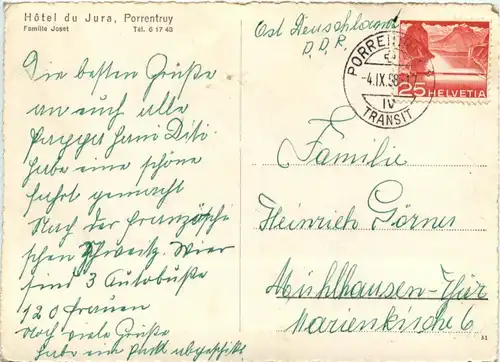 Hôtel du Jura, Porrentruy
Famille Joset
Tél. 6 17 43
Die besten Grüße
an euch alle
habe eine schöne
fahrt gemacht
Nach der französchi
schen Schweitz. Wier
sind 3 Autobuße
120 frauen
Noch viele Grüße
habe ein Pack abgeschikt
Ost Deuschland
D.D.R.
PORRENTRUY
-4.IX.58-17
IV
TRANSIT
25 HELVETIA
Familie
Heinrich Görner
Mühlhausen-Thür
Marienkirche 6
51